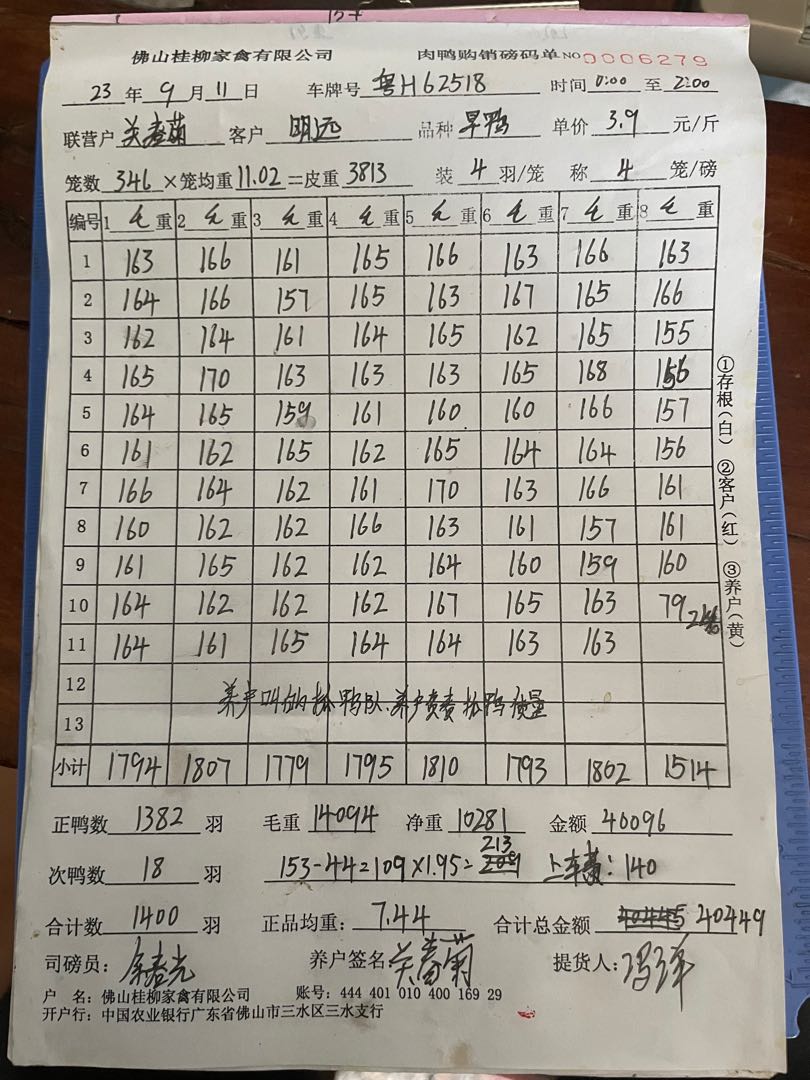 佛山桂柳家禽有限公司 肉鸭购销磅码单 NO 0006279
23 年 9 月 11 日 车牌号 粤H62518 时间 0:00 至 2:00
联营户 关春菊 客户 明远 品种 旱鸭 单价 3.9 元/斤
笼数 346 ×笼均重 11.02 =皮重 3813 装 4 羽/笼 称 4 笼/磅
编号 1 毛 重 2 毛 重 3 毛 重 4 毛 重 5 毛 重 6 毛 重 7 毛 重 8 毛 重
1 163 166 161 165 166 163 166 163
2 164 166 157 165 163 167 165 166
3 162 164 161 164 165 162 165 155
4 165 170 163 163 163 165 168 156
5 164 165 159 161 160 160 166 157
6 161 162 165 162 165 164 164 156
7 166 164 162 161 170 163 166 161
8 160 162 162 166 163 161 157 161
9 161 165 162 162 164 160 159 160
10 164 162 162 162 167 165 163 79 2笼
11 164 161 165 164 164 163 163
12
养户叫的抓鸭队、养户负责抓鸭质量
13
小计 1794 1807 1779 1795 1810 1793 1802 1514
正鸭数 1382 羽 毛重 14094 净重 10281 金额 40096
次鸭数 18 羽 153-44=109×1.95= 213 上车费：140
合计数 1400 羽 正品均重： 7.44 合计总金额 40449
司磅员： 养户签名 关春菊 提货人：
户 名：佛山桂柳家禽有限公司 账号：444 401 010 400 169 29
开户行：中国农业银行广东省佛山市三水区三水支行
①存根（白） ②客户（红） ③养户（黄）